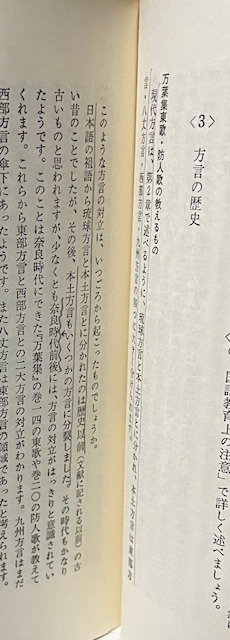 国語教育上の注意」で詳しく述べましょう。
〈3〉 方言の歴史
万葉集東歌・防人歌の教えるもの
現代方言は、第2章で述べるように、琉球方言と本土方言とに分かれ、本土方言は東部方
言・八丈方言・西部方言・九州方言の四つに大きく分け
このような方言の対立は、いつごろから起こったものでしょうか。
日本語の祖語から琉球方言と本土方言とに分かれたのは歴史以前(文献に記される以前)の古
い昔のことでしたが、その後、本土方言もいくつかの方言に分裂しました。その時代もかなり
古いものと思われますが、少なくとも奈良時代前後には、方言の対立がはっきりと意識されてい
たようです。このことは奈良時代にできた『万葉集』の巻一四の東歌や巻二〇の防人歌が教えて
くれます。これらから東部方言と西部方言との二大方言の対立がわかります。九州方言はまだ
西部方言の傘下にあったようです。また八丈方言は東部方言の領域であったと考えられます。